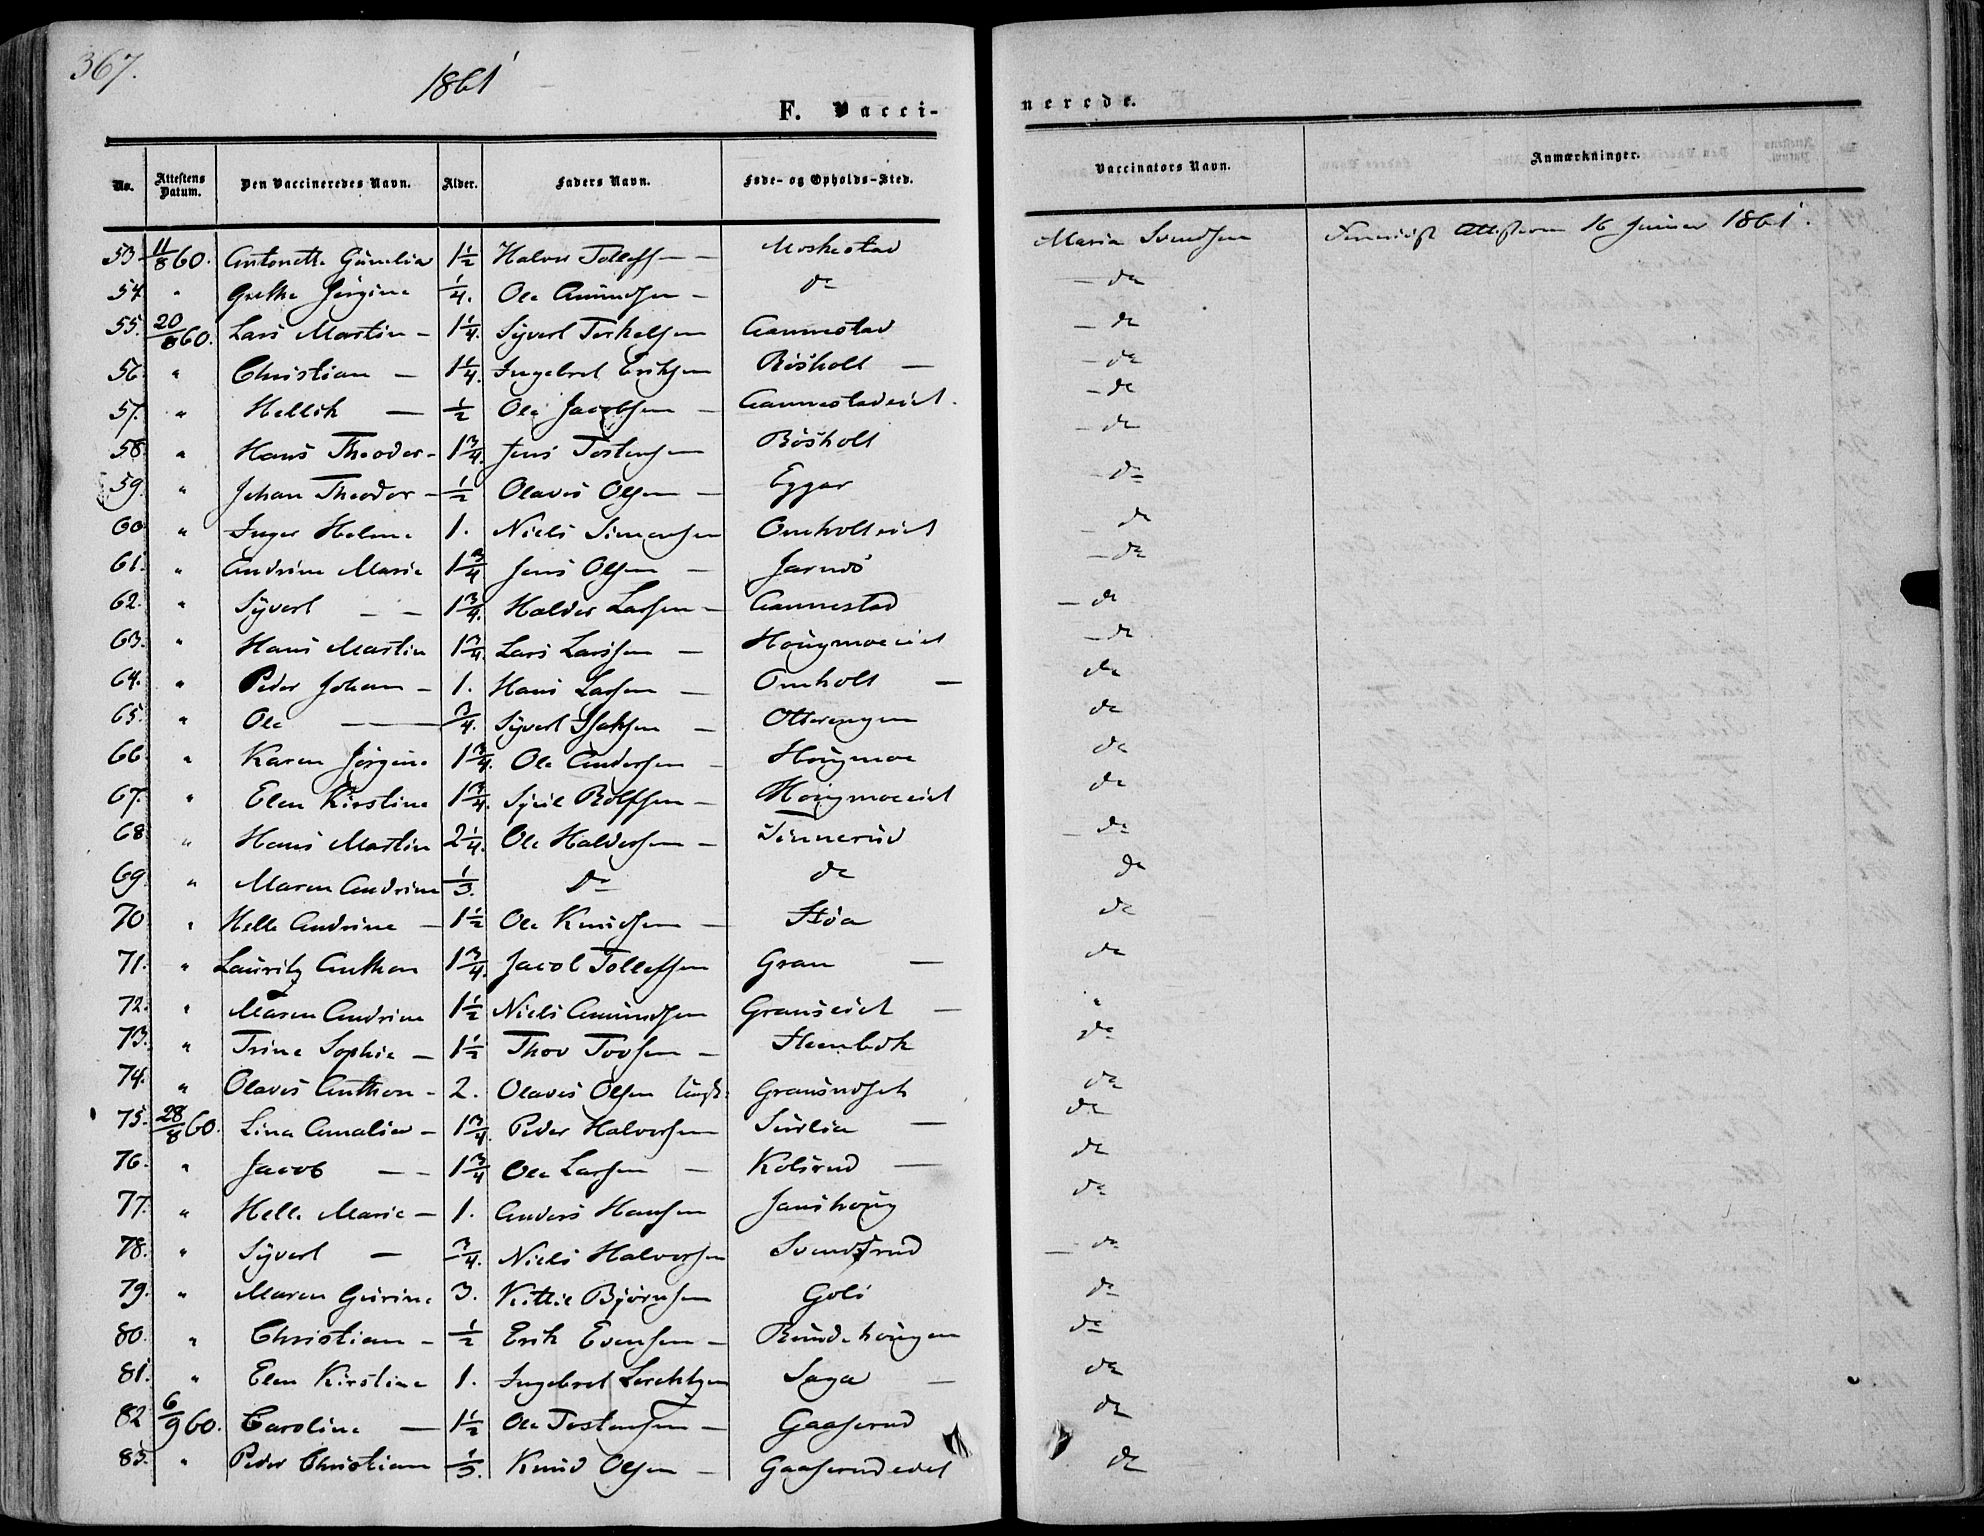 367.
1861
F. Vacci-
nerede.
No. Attestens Datum. Den Vaccineredes Navn. Alder. Faders Navn. Føde- og Opholds-Sted. Vaccinators Navn. Anmærkninger.
53. 11/8 60. Antonette Gunelia 1½ Halvor Tollefs — Moskestad Maria Svendsen Attesterne 16 Januar 1861.
54. " Grethe Jørgine ¼. Ole Amundsen — do — do
55. 20/8 60. Lars Martin — 1¼. Syvert Terkelsen Aannestad — do
56. " Christian — 1¼. Ingebret Eriksen Bösholt — — do
57. " Hellik — ½ Ole Jacobsen — Aannestadeiet. — do
58. " Hans Theodor — 1¾. Jens Tostensen Bösholt — do
59. " Johan Theodor — ½ Olavus Olsen — Eggar — do
60. " Inger Helene 1. Niels Simensen Omholteiet — do
61. " Andrine Marie 1¾ Jens Olsen — Jarnös — do
62. " Syvert — — 1¾. Haldor Larsen — Aannestad — do
63. " Hans Martin 1¾. Lars Larssen — Hougmoeeiet — do
64. " Peder Johan — 1. Hans Larsen — Omholt — do
65. " Ole — ¾. Syvert Isaksen — Otterengen do
66. " Karen Jörgine 1¾. Ole Andersen — Hougmoe do
67. " Elen Kirstine 1¾. Rolfsen — Hougmoeeiet do
68. " Hans Martin 2¼. Ole Haldorsen — Tinnerud — do
69. " Maren Andrine ⅓. do do do
70. " Helle Andrine — 1½ Ole Knudsen — Stöa do
71. " Lauritz Anthon 1¾. Jacob Tollefsen Gran — do
72. " Maren Andrine 1½ Niels Amundsen Granseiet — "
73. " Trine Sophie — 1½ Thov Tovsen — Steenbek do
74. " Olavus Anthon — 2. Olavus Olsen Ungk. do
75. 28/8 60. Lina Amalia — 1¾. Peder Halvorsen Surlia — do
76. " Jacob — — 1¾ Ole Larsen — Kolsrud — do
77. " Helle Marie — 1. Anders Hansen Janshoug do
78. " Syvert — ¾. Niels Halvorsen Svendsrud — do
79. " Maren Gurine 3. Kittil Björnsen Goli do
80. " Christian — ½ Erik Evensen — Rundehougen do
81. " Elen Kirstine 1. Ingebret Saga — do
82. 6/9 60. Caroline — 1½ Ole Tostensen — Gaaserud do
83. " Peder Christian ⅓. Knud Olsen — Gaaserudedet do